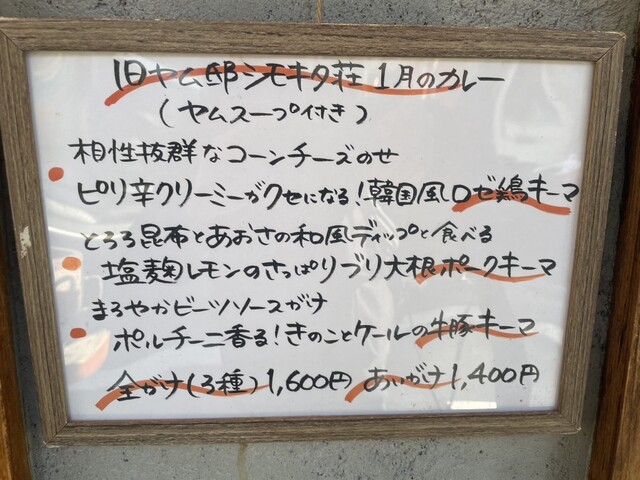 旧ヤム邸シモキタ荘 1月のカレー
(ヤムスープ付き)
相性抜群なコーンチーズのせ
ピリ辛クリーミーがクセになる!韓国風ロゼ鶏キーマ
とろろ昆布とあおさの和風ディップと食べる
塩麹レモンのさっぱりブリ大根ポークキーマ
まろやかビーツソースがけ
ポルチーニ香る!きのことケールの牛豚キーマ
全がけ(3種)1,600円 あいがけ1,400円